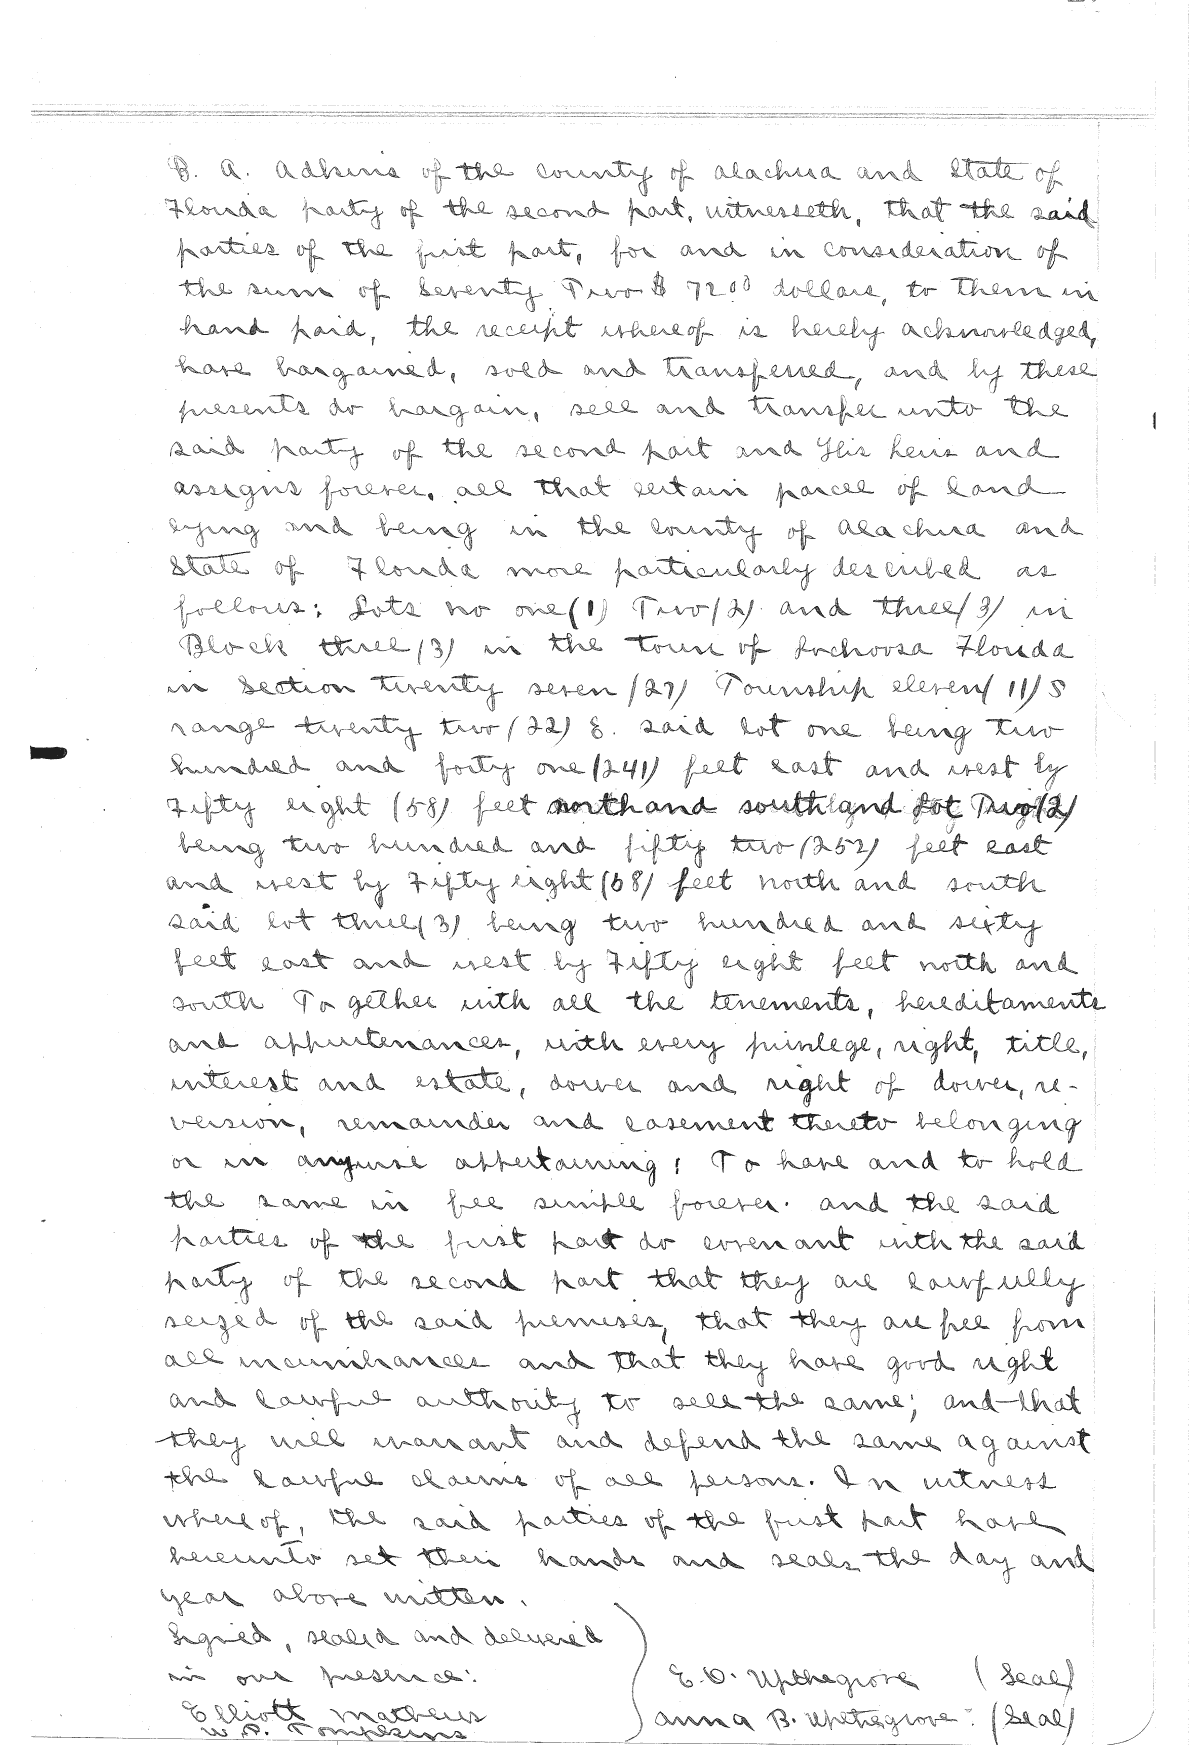 B. A. Adkins of the county of Alachua and State of
Florida party of the second part, witnesseth, that the said
parties of the first part, for and in consideration of
the sum of Seventy Two $ 7200 dollars, to them in
hand paid, the receipt whereof is hereby acknowledged,
have bargained, sold and transferred, and by these
presents do bargain, sell and transfer unto the
said party of the second part and His heirs and
assigns forever, all that certain parcel of land
lying and being in the county of Alachua and
State of Florida more particularly described as
follows: Lots no one (1) Two (2) and three (3) in
Block three (3) in the town of Lochoosa Florida
in Section twenty seven (27) Township eleven (11) S
range twenty two (22) E. said lot one being two
hundred and forty one (241) feet east and west by
Fifty eight (58) feet north and south and Lot Two (2)
being two hundred and fifty two (252) feet east
and west by Fifty eight (58) feet north and south
said lot three (3) being two hundred and sixty
feet east and west by Fifty eight feet north and
south Together with all the tenements, hereditaments
and appurtenances, with every privilege, right, title,
interest and estate, dower and right of dower, re-
version, remainder and easement thereto belonging
or in anywise appertaining: To have and to hold
the same in fee simple forever. and the said
parties of the first part do covenant with the said
party of the second part that they are lawfully
seized of the said premises, that they are free from
all incumbrances and that they have good right
and lawful authority to sell the same; and that
they will warrant and defend the same against
the lawful claims of all persons. In witness
whereof, the said parties of the first part have
hereunto set their hands and seals the day and
year above written.
Signed, sealed and delivered
in our presence:
E. O. Upthegrove (Seal)
Elliott Matheus
Anna B. Upthegrove. (Seal)
W. P. Tompkins